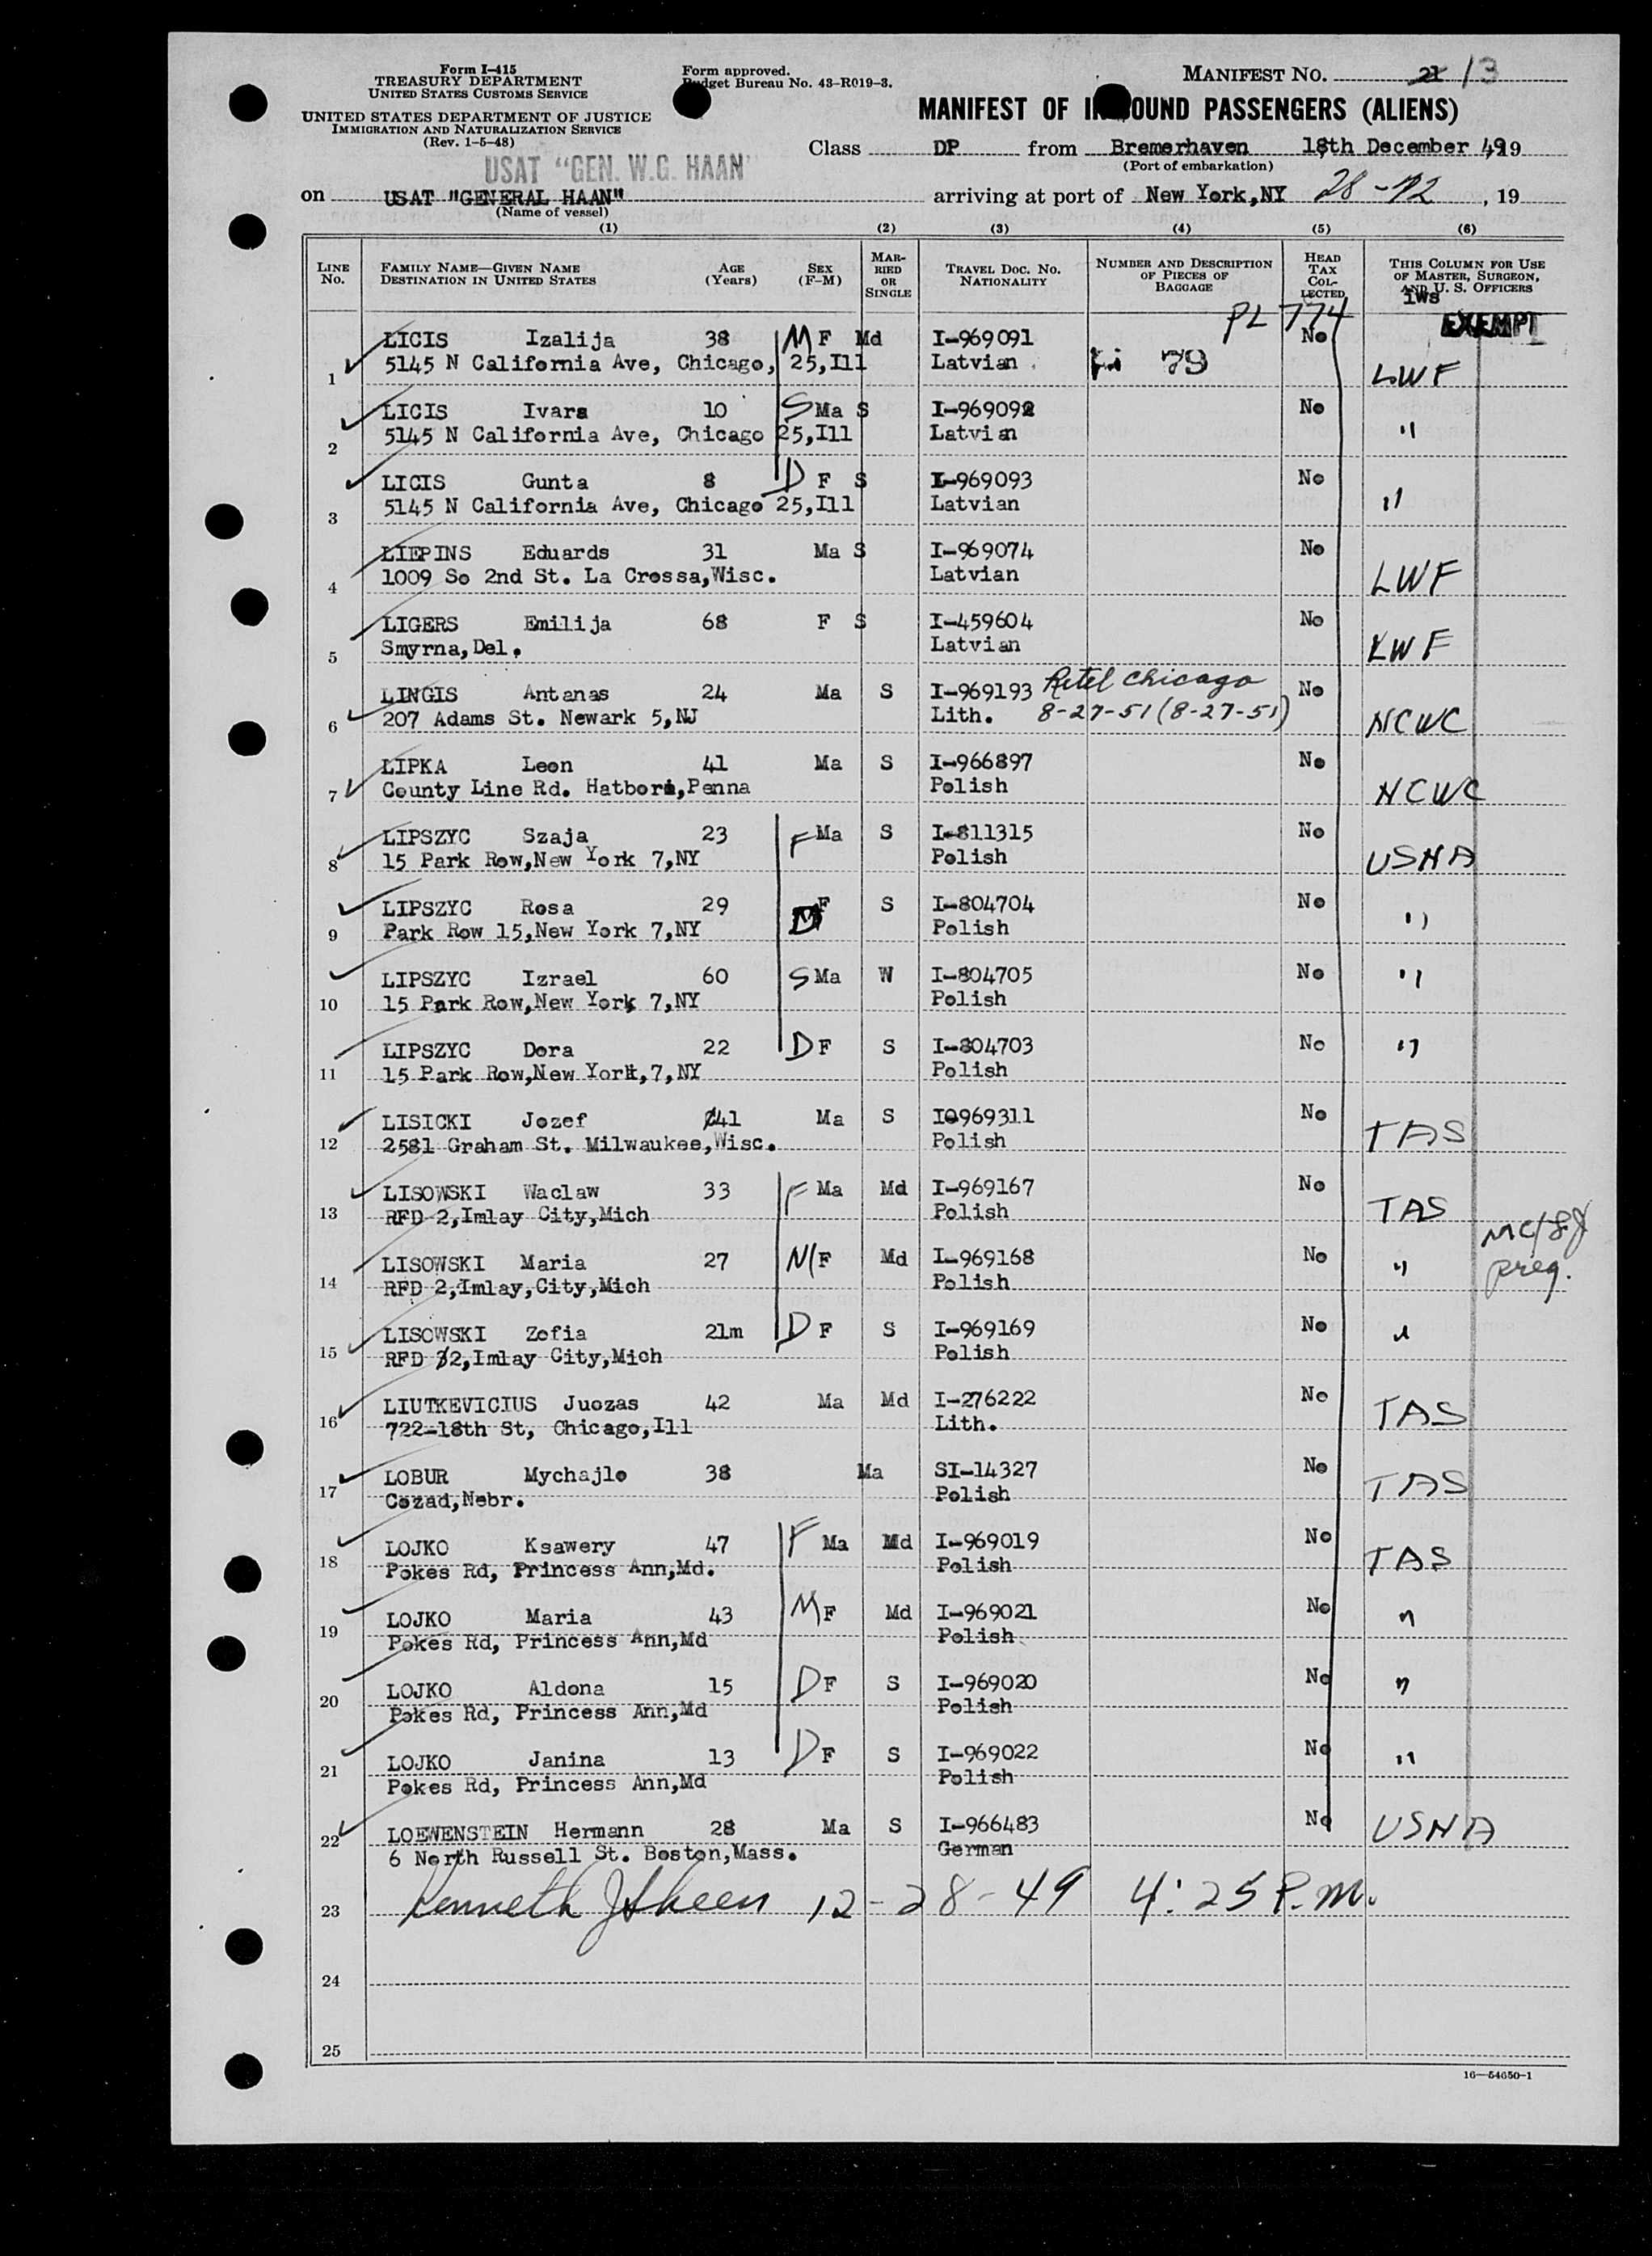 Form I-415
TREASURY DEPARTMENT
UNITED STATES CUSTOMS SERVICE
UNITED STATES DEPARTMENT OF JUSTICE
IMMIGRATION AND NATURALIZATION SERVICE
(Rev. 1-5-48)
Form approved.
Budget Bureau No. 43-R019-3.
MANIFEST NO. 21 13
MANIFEST OF INBOUND PASSENGERS (ALIENS)
USAT "GEN. W.G. HAAN"
Class DP from Bremerhaven 18th December 49, 19
(Port of embarkation)
on USAT "GENERAL HAAN" arriving at port of New York,NY 28-12, 19
(Name of vessel)
(1) (2) (3) (4) (5) (6)
LINE NO. FAMILY NAME—GIVEN NAME DESTINATION IN UNITED STATES AGE (Years) SEX (F-M) MARRIED OR SINGLE TRAVEL DOC. NO. NATIONALITY NUMBER AND DESCRIPTION OF PIECES OF BAGGAGE HEAD TAX COLLECTED THIS COLUMN FOR USE OF MASTER, SURGEON, AND U. S. OFFICERS
iws
PL 774 EXEMPT
LICIS Izalija 38 M F Md I-969091 No
1 5145 N California Ave, Chicago, 25,Ill Latvian 79 LWF
LICIS Ivars 10 S Ma S I-969092 No
2 5145 N California Ave, Chicago 25,Ill Latvian "
LICIS Gunta 8 D F S I-969093 No
3 5145 N California Ave, Chicago 25,Ill Latvian "
LIEPINS Eduards 31 Ma S I-969074 No
4 1009 So 2nd St. La Cressa,Wisc. Latvian LWF
LIGERS Emilija 68 F S I-459604 No
5 Smyrna,Del. Latvian LWF
LINGIS Antanas 24 Ma S I-969193 Retel Chicago No
6 207 Adams St. Newark 5,NJ Lith. 8-27-51 (8-27-51) NCWC
LIPKA Leon 41 Ma S I-966897 No
7 County Line Rd. Hatboro,Penna Polish NCWC
LIPSZYC Szaja 23 F Ma S I-811315 No
8 15 Park Row,New York 7,NY Polish USNA
LIPSZYC Rosa 29 F S I-804704 No
9 Park Row 15,New York 7,NY Polish "
LIPSZYC Izrael 60 S Ma W I-804705 No
10 15 Park Row,New York 7,NY Polish "
LIPSZYC Dora 22 D F S I-804703 No
11 15 Park Row,New York,7,NY Polish "
LISICKI Jozef 41 Ma S I0969311 No
12 2581 Graham St. Milwaukee,Wisc. Polish TAS
LISOWSKI Waclaw 33 F Ma Md I-969167 No
13 RFD 2,Imlay City,Mich Polish TAS
LISOWSKI Maria 27 M F Md I-969168 No
14 RFD 2,Imlay,City,Mich Polish " preg.
LISOWSKI Zofia 21m D F S I-969169 No
15 RFD 2,Imlay City,Mich Polish "
LIUTKEVICIUS Juozas 42 Ma Md I-276222 No
16 722-18th St, Chicago,Ill Lith. TAS
LOBUR Mychajlo 38 Ma SI-14327 No
17 Cozad,Nebr. Polish TAS
LOJKO Ksawery 47 F Ma Md I-969019 No
18 Pokes Rd, Princess Ann,Md. Polish TAS
LOJKO Maria 43 M F Md I-969021 No
19 Pokes Rd, Princess Ann,Md Polish "
LOJKO Aldona 15 D F S I-969020 No
20 Pokes Rd, Princess Ann,Md Polish "
LOJKO Janina 13 D F S I-969022 No
21 Pokes Rd, Princess Ann,Md Polish "
LOEWENSTEIN Hermann 28 Ma S I-966483 No
22 6 North Russell St. Boston,Mass. German USNA
23 Kenneth J Skeen 12-28-49 4:25 P.M.
24
25
16—54650-1